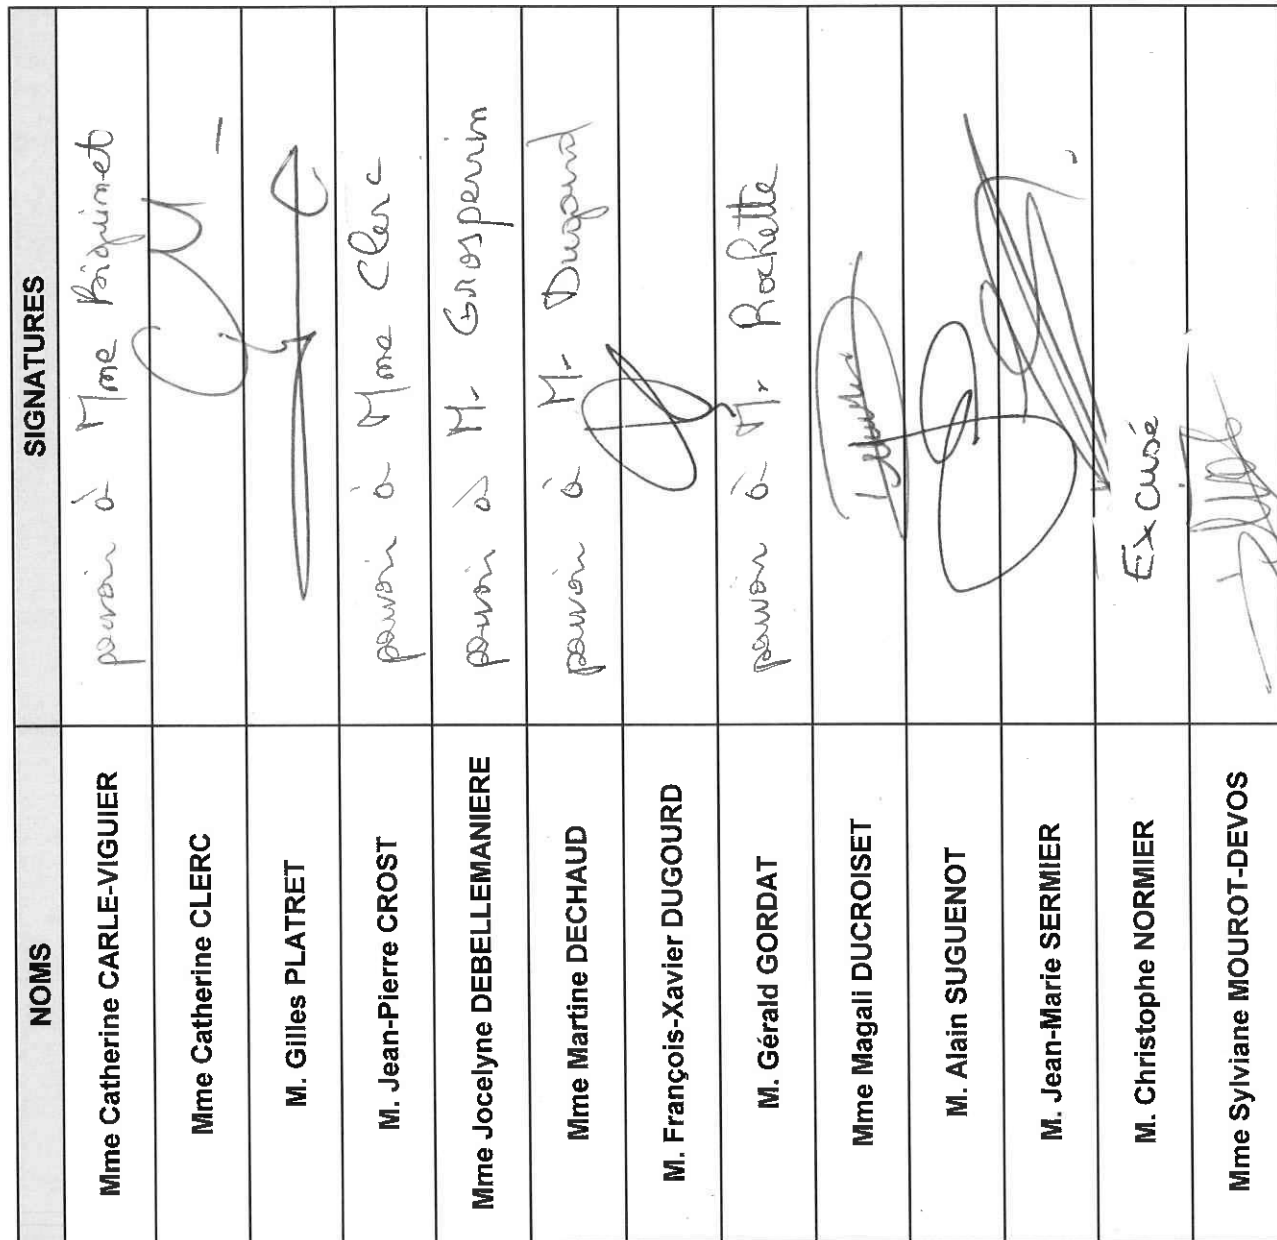 NOMS SIGNATURES
Mme Catherine CARLE-VIGUIER pouvoir à Mme
Mme Catherine CLERC
M. Gilles PLATRET
M. Jean-Pierre CROST pouvoir à Mme Clerc
Mme Jocelyne DEBELLEMANIERE pouvoir à Mr Grosperrin
Mme Martine DECHAUD pouvoir à Mr Dugourd
M. François-Xavier DUGOURD
M. Gérald GORDAT pouvoir à Mr Rochette
Mme Magali DUCROISET
M. Alain SUGUENOT
M. Jean-Marie SERMIER
M. Christophe NORMIER Excusé
Mme Sylviane MOUROT-DEVOS